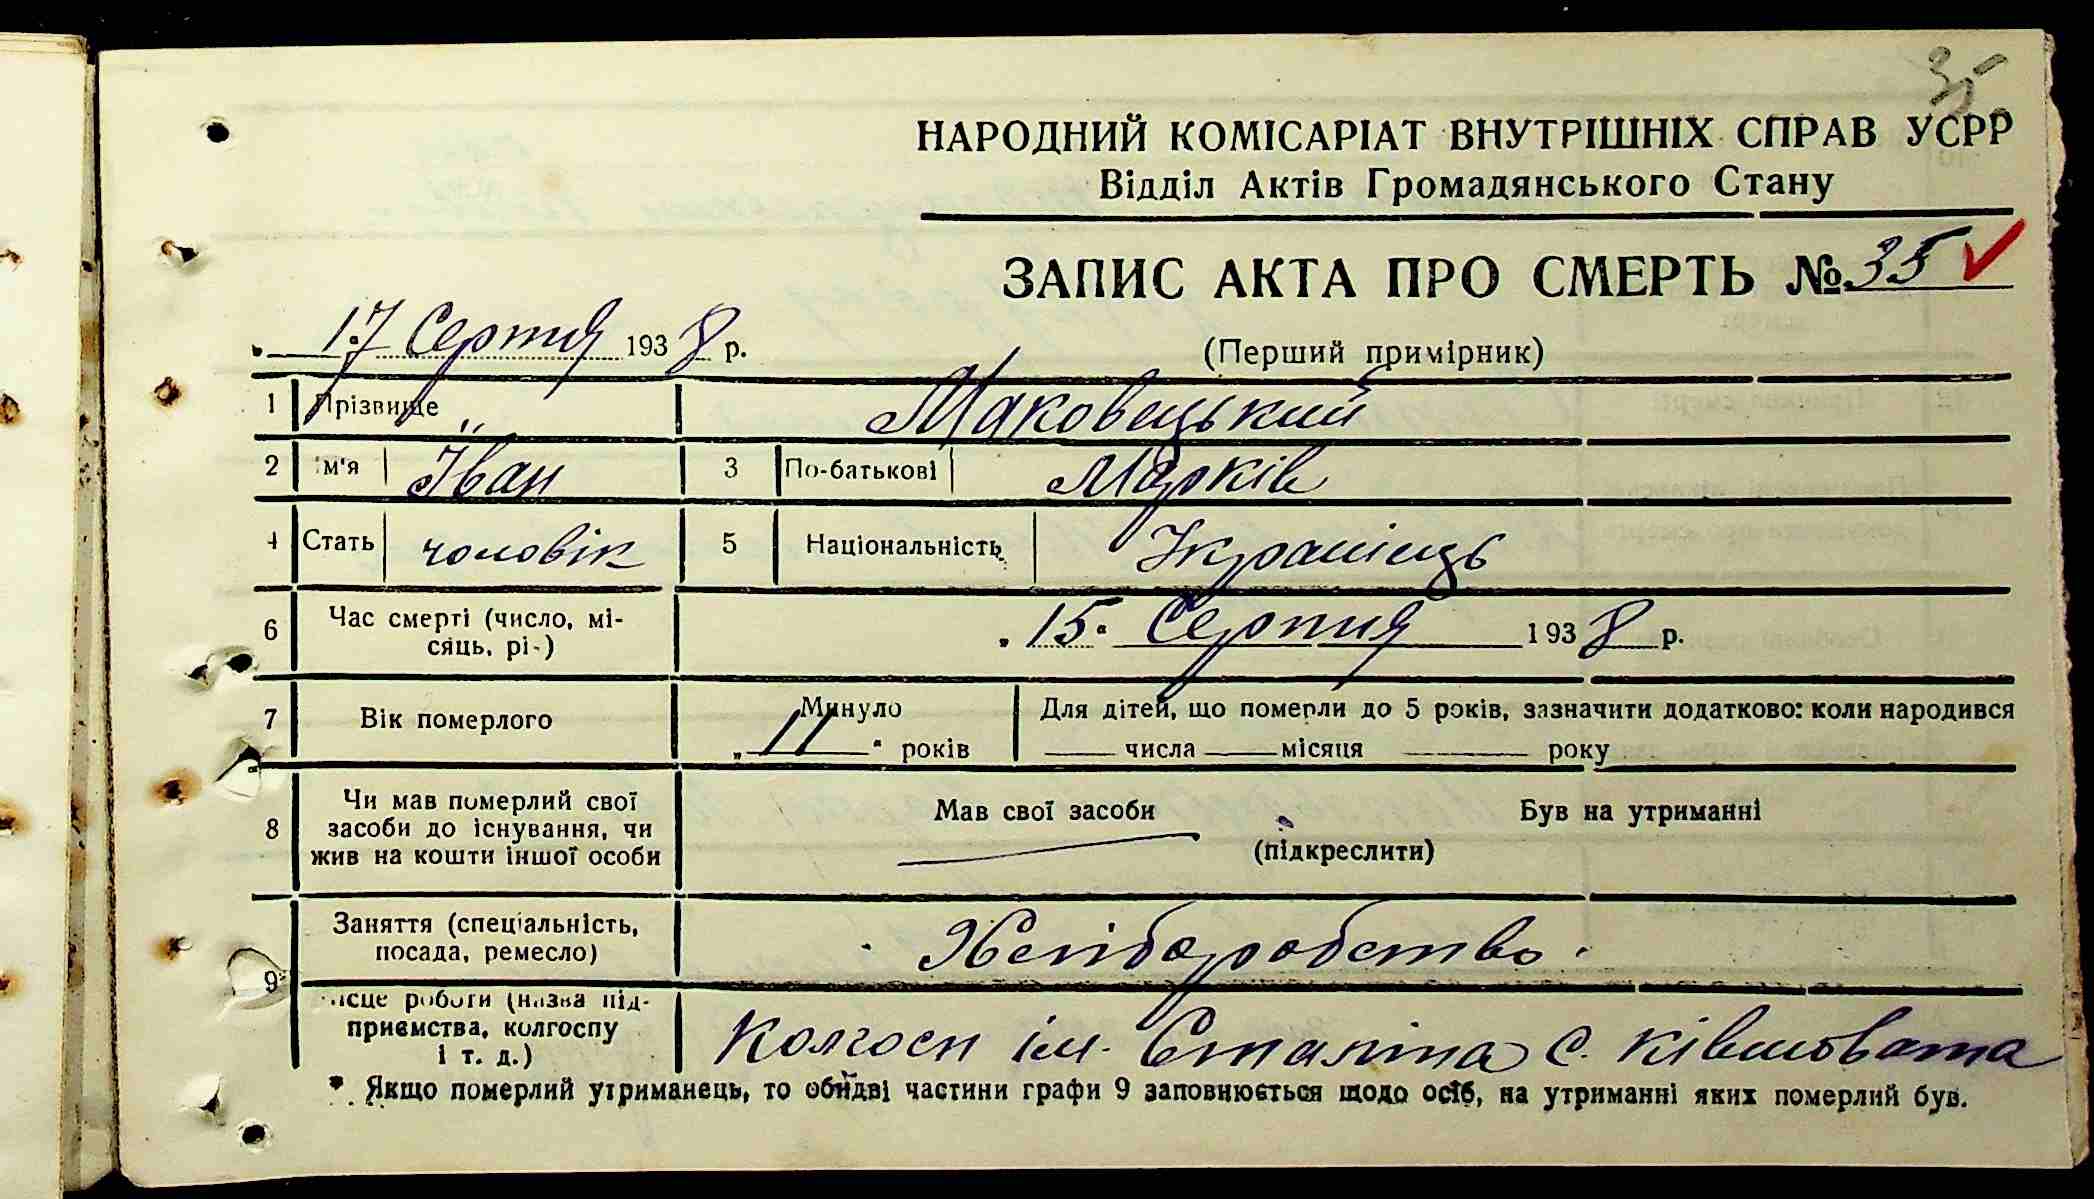 35
НАРОДНИЙ КОМІСАРІАТ ВНУТРІШНІХ СПРАВ УСРР
Відділ Актів Громадянського Стану
ЗАПИС АКТА ПРО СМЕРТЬ № 35
„ 17 Серпня 1938 р.
(Перший примірник)
1 Прізвище Маковецький
2 ім'я Іван 3 По-батькові Марків
4 Стать чоловік 5 Національність Украінець
6 Час смерті (число, мі-
сяць, рі-) „ 15 " Серпня 1938 р.
7 Вік померлого Минуло „ 11 " років
Для дітей, що померли до 5 років, зазначити додатково: коли народився
числа місяця року
8 Чи мав померлий свої
засоби до існування, чи
жив на кошти іншої особи
Мав свої засоби Був на утриманні
(підкреслити)
9 Заняття (спеціальність,
посада, ремесло) Хліборобство.
місце роботи (назва під-
приємства, колгоспу
і т. д.) Колгосп ім. Сталіна с. Ківшовата
* Якщо померлий утриманець, то обидві частини графи 9 заповнюється щодо осіб, на утриманні яких померлий був.